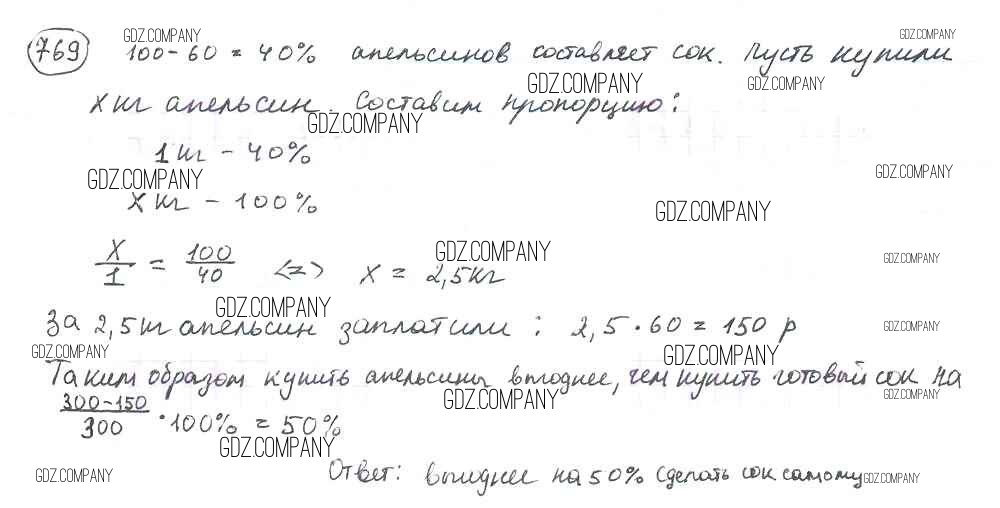 GDZ.COMPANY GDZ.COMPANY
769 100-60 = 40% апельсинов составляет сок. Пусть купили
GDZ.COMPANY GDZ.COMPANY
x кг апельсин. Составим пропорцию:
GDZ.COMPANY
1 кг - 40%
GDZ.COMPANY GDZ.COMPANY
x кг - 100%
GDZ.COMPANY
GDZ.COMPANY GDZ.COMPANY
x/1 = 100/40 <=> x = 2,5 кг
GDZ.COMPANY
За 2,5 кг апельсин заплатили: 2,5 · 60 = 150 р
GDZ.COMPANY
GDZ.COMPANY GDZ.COMPANY
Таким образом купить апельсины выгоднее, чем купить готовый сок на
GDZ.COMPANY GDZ.COMPANY
300-150/300 · 100% = 50%
GDZ.COMPANY
Ответ: выгоднее на 50% сделать сок самому
GDZ.COMPANY GDZ.COMPANY